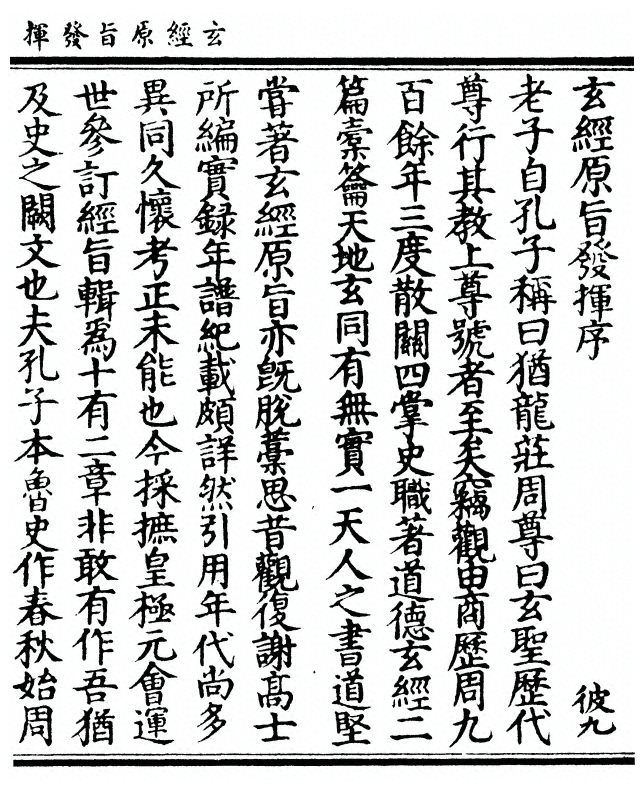 玄經原旨發揮
玄經原旨發揮序
彼九
老子自孔子稱曰猶龍莊周尊曰玄聖歷代
尊行其教上尊號者至矣竊觀由商歷周九
百餘年三度散關四掌史職著道德玄經二
篇橐籥天地玄同有無實一天人之書道堅
嘗著玄經原旨亦旣脫藁思昔觀復謝高士
所編實録年譜紀載頗詳然引用年代尚多
異同久懷考正未能也今採摭皇極元會運
世參訂經旨輯爲十有二章非敢有作吾猶
及史之闕文也夫孔子本魯史作春秋始周